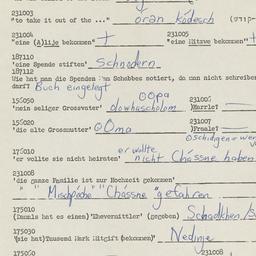 231003
"to take it out of the ..." oran kodesch
231004 231005
"eine (A)lije bekommen" + "eine (M)itzve bekommen" +
187110
"eine Spende stiften" Schnodern
187112
Wie hat man die Spenden am Schabbes notiert, da man nicht schreiben
darf? Buch eingelegt
156050 OOpa 231006
"mein seliger Grossvater" olowhascholom )Harrle(
156020 231007
"die alte Grossmutter" OOma )Fraale(
176010 er wollte
"er wollte sie nicht heiraten" nicht Chassne haben
231008
"die ganze Familie ist zur Hochzeit gekommen"
" " Mischpoche" "Chassne" gefahren
175010
(Damals hat es einen) "Ehevermittler" (gegeben) Schadchen
175030
"(sie hat) Tausend Mark Mitgift (bekommen)" Nedinje
175060 231008